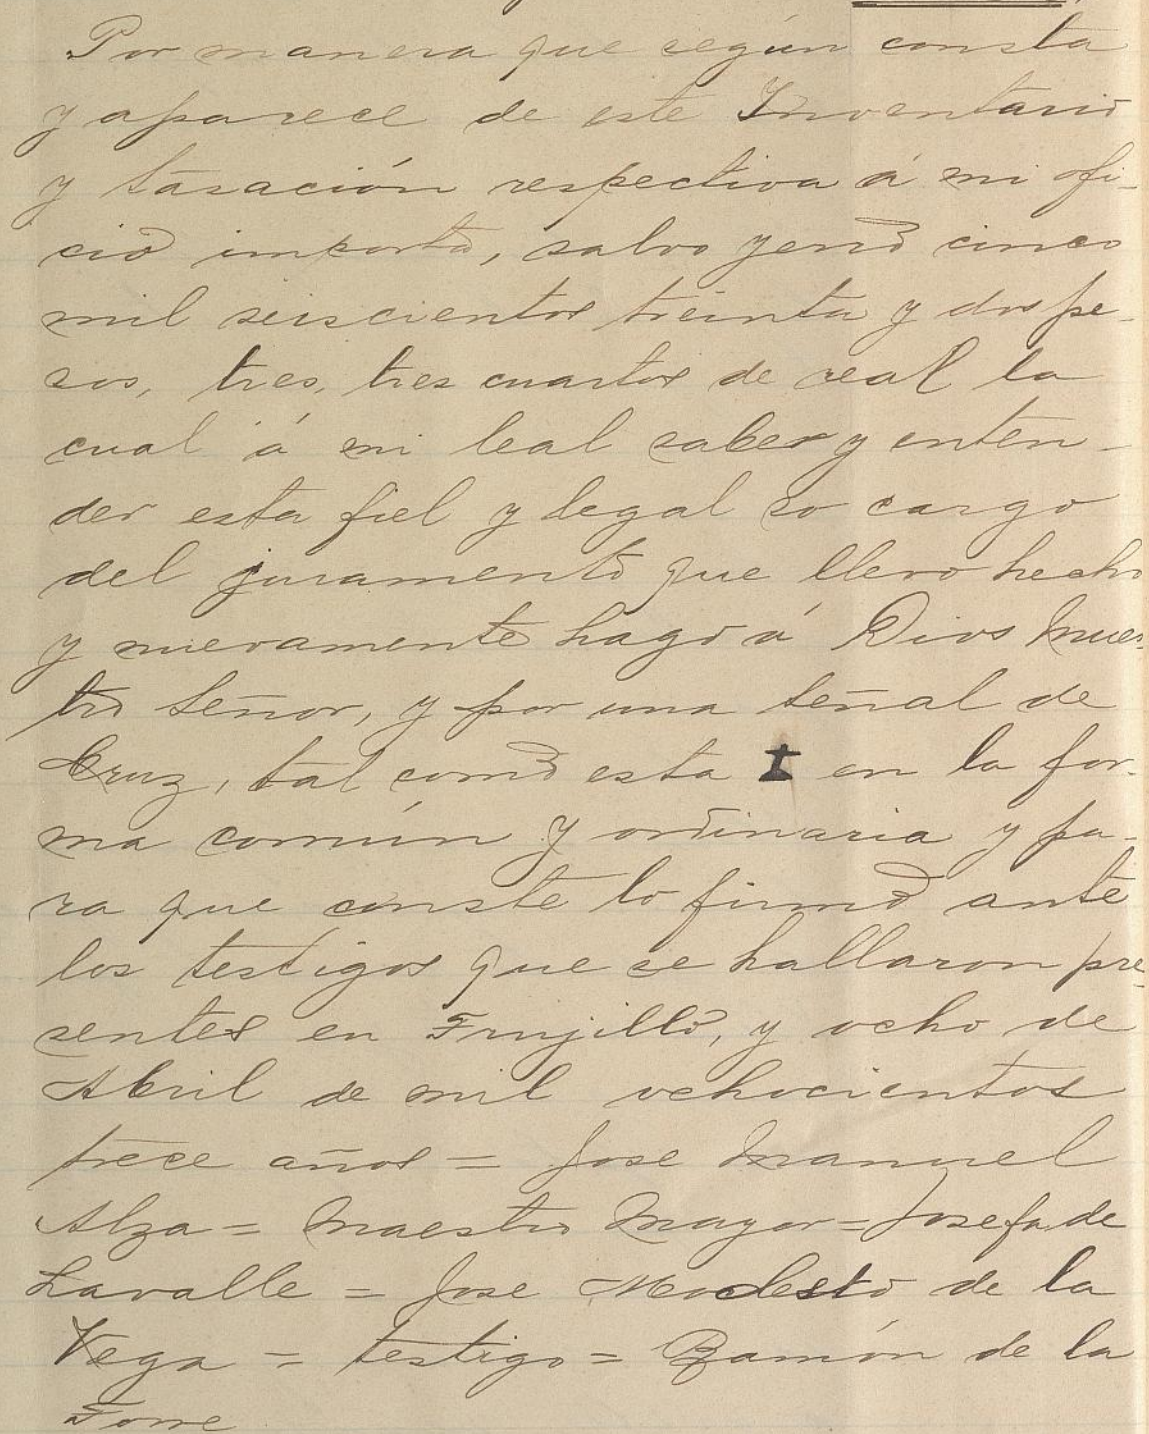 Por manera que según consta
y aparece de este Inventario
y tasación respectiva á mi ofi-
cio importa, salvo yerro cinco
mil seiscientos treinta y dos pe-
sos, tres, tres cuartos de real la
cual á mi leal saber y enten-
der esta fiel y legal so cargo
del juramento que llevo hecho
y nuevamente hago á Dios Nues-
tro Señor, y por una señal de
Cruz, tal como esta ✝ en la for-
ma común y ordinaria y pa-
ra que conste lo firmo ante
los testigos que se hallaron pre-
sentes en Trujillo, y ocho de
Abril de mil ochocientos
trece años = Jose Manuel
Alza = Maestro Mayor = Josefa de
Lavalle = Jose Modesto de la
Vega = testigo = Ramón de la
Torre